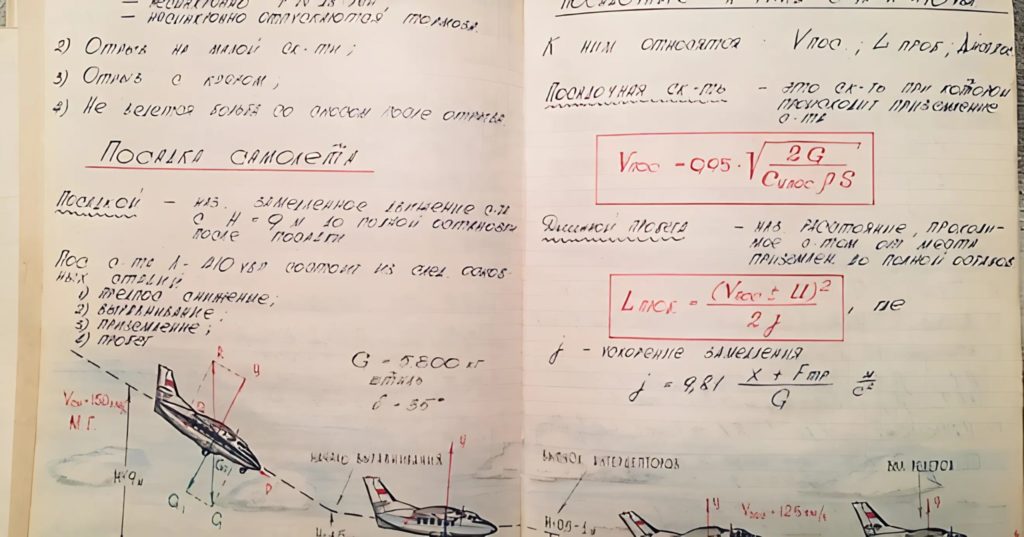 — несинхронно отпускаются тормоза.
2) Отрыв на малой ск-ти;
3) Отрыв с креном;
4) Не ведется борьба со сносом после отрыва.
Посадка самолета
Посадкой — наз. замедленное движение с-та
с H = 9 м до полной остановки
после посадки
Пос. с-та Л-410 УВП состоит из след. основ-
ных стадий
1) предпос снижение;
2) выравнивание;
3) приземление;
4) пробег
G = 5800 кг
штиль
δ = 35°
R
y
Vсн = 150 км/ч
М.Г.
Q
P
G1
G
H=9м
начало выравнивания
y
К ним относятся: Vпос.; L проб;
Посадочная ск-ть — это ск-ть при котором
происходит приземление
с-та
Vпос = 0,95 · √ 2G / Cупос ρ S
Длинной пробега — наз. расстояние, проходи-
мое с-том от места
приземлен. до полной останов
L проб. = (Vпос ± U)² / 2j , где
j — ускорение замедления
j = 9,81 X + Fтр / G м/с²
выпуск интерцепторов
H=0,5-1м
y
y